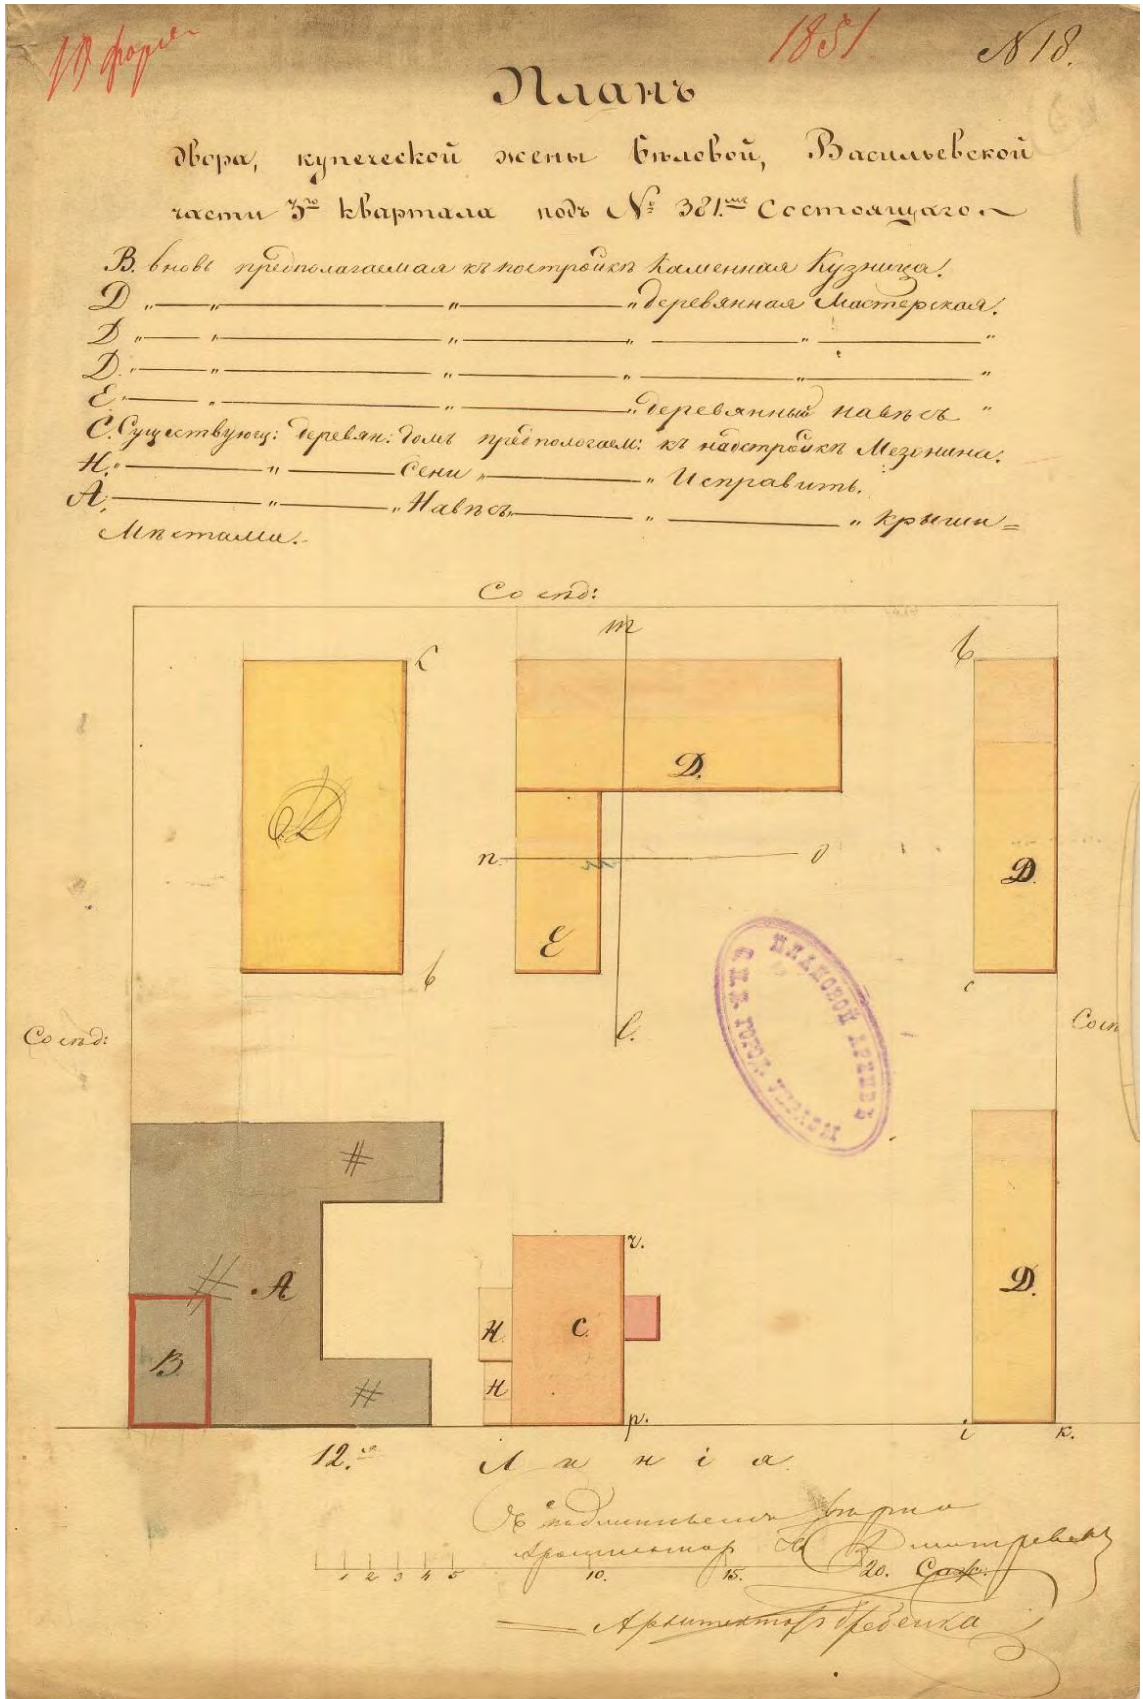 1851. №18.
Планъ
двора, купеческой жены Бѣловой, Васильевской
части 3го квартала подъ № 381мъ Состоящаго.
В. вновь предполагаемая къ постройкѣ Каменная Кузница.
D „ „ „ „ деревянная Мастерская.
D „ „ „ „ „ „
D. „ „ „ „ „ „
Е. „ „ „ „ деревянный навѣсъ „
С. Существующ: деревян: домъ предпологаем: къ надстройкѣ Мезонина.
Н. „ „ Сени „ „ Исправить.
А. „ „ Навѣсъ „ „ „ крыши=
Мѣстами.
Сосѣд:
m
D D. D
n o
E
l.
Сосѣд: Сосѣ
ПЛАНОВОЙ АРХИВЪ
А
В Н С. D.
Н
r.
p. i к.
12.я Линія
Архитекторъ
1 2 3 4 5 10. 15. 20. Саж.
Архитекторъ Гребенка